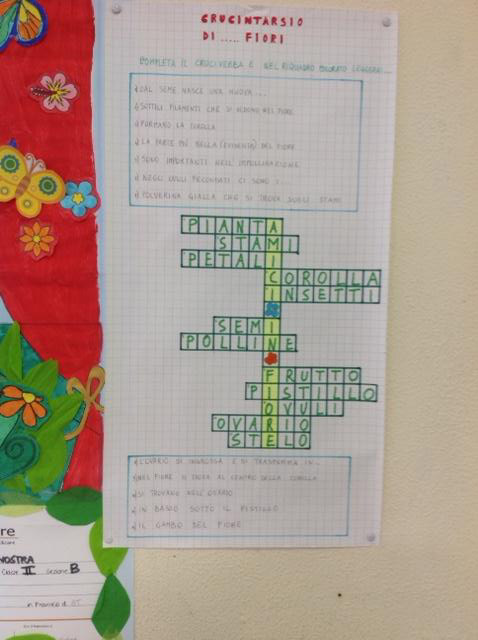 CRUCINTARSIO
DI ..... FIORI
COMPLETA IL CRUCIVERBA E NEL RIQUADRO COLORATO LEGGERAI...
DAL SEME NASCE UNA NUOVA...
SOTTILI FILAMENTI CHE SI VEDONO NEL FIORE
FORMANO LA COROLLA
LA PARTE PIÙ BELLA (EVIDENTE) DEL FIORE
SONO IMPORTANTI NELL'IMPOLLINAZIONE
NEGLI OVULI FECONDATI CI SONO I...
POLVERINA GIALLA CHE SI TROVA SUGLI STAMI
PIANTA
STAMI
PETALI
COROLLA
INSETTI
SEMI
POLLINE
FRUTTO
PISTILLO
OVULI
OVARIO
STELO
L'OVARIO SI INGROSSA E SI TRASFORMA IN...
NEL FIORE SI TROVA AL CENTRO DELLA COROLLA
SI TROVANO NELL'OVARIO
IN BASSO SOTTO IL PISTILLO
IL GAMBO DEL FIORE
re
NOSTRA
Classe II Sezione B
in Provincia di AT